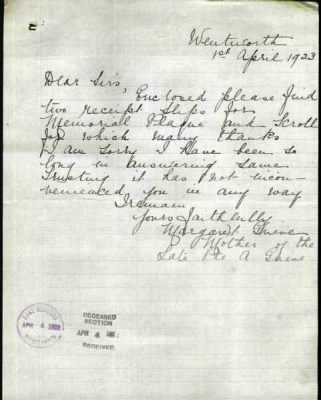 Wentworth
1st April 1923
Dear Sirs,
Enclosed please find
two receipt slips for
Memorial Plaque and Scroll
for which many thanks
I am sorry I have been so
long in answering same
trusting it has not incon-
venienced you in any way
I remain
Yours faithfully
Margaret
Mother of the
Late Pte A
APR 4
DECEASED
SECTION
APR 4
RECEIVED